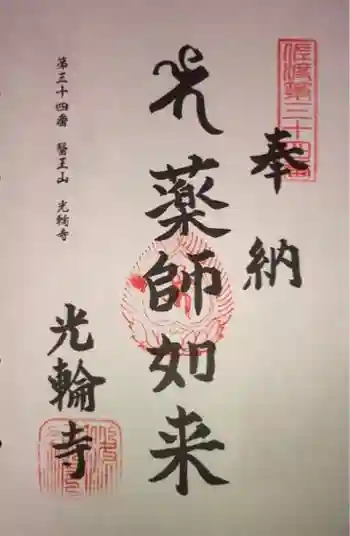 佐渡第三十四番
奉納
薬師如来
第三十四番 醫王山 光輪寺
光輪寺